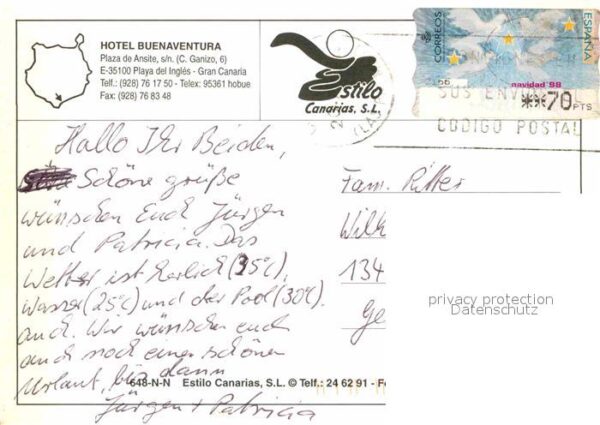 HOTEL BUENAVENTURA
Plaza de Ansite, s/n. (C. Ganizo, 6)
E-35100 Playa del Inglés - Gran Canaria
Telf.: (928) 76 17 50 - Telex: 95361 hobue
Fax: (928) 76 83 48
Estilo
Canarias, S.L.
CORREOS
ESPAÑA
navidad 98
***70 PTS
CODIGO POSTAL
Hallo Ihr Beiden,
Schöne grüße
wünschen Euch Jürgen
und Patricia. Das
Wetter ist herlich (35°C),
Wasser (25°C) und der Pool (30°C).
auch. Wir wünschen euch
auch noch einen schönen
Urlaut, bis dann
Jürgen + Patricia
Fam. Ritter
Wilh
134
Ge
privacy protection
Datenschutz
648-N-N Estilo Canarias, S.L. © Telf.: 24 62 91 - Fe